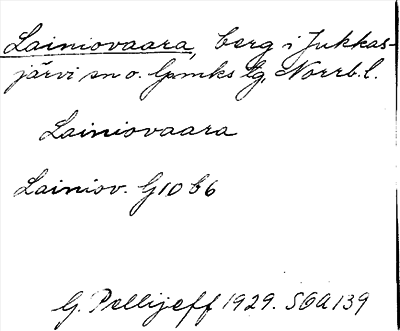 Lainiovaara, berg i Jukkas-
järvi sn o. lpmks tg, Norrb. l.
Lainiovaara
Lainiov. G10 b6
G. Pellijeff 1929. SOA 139